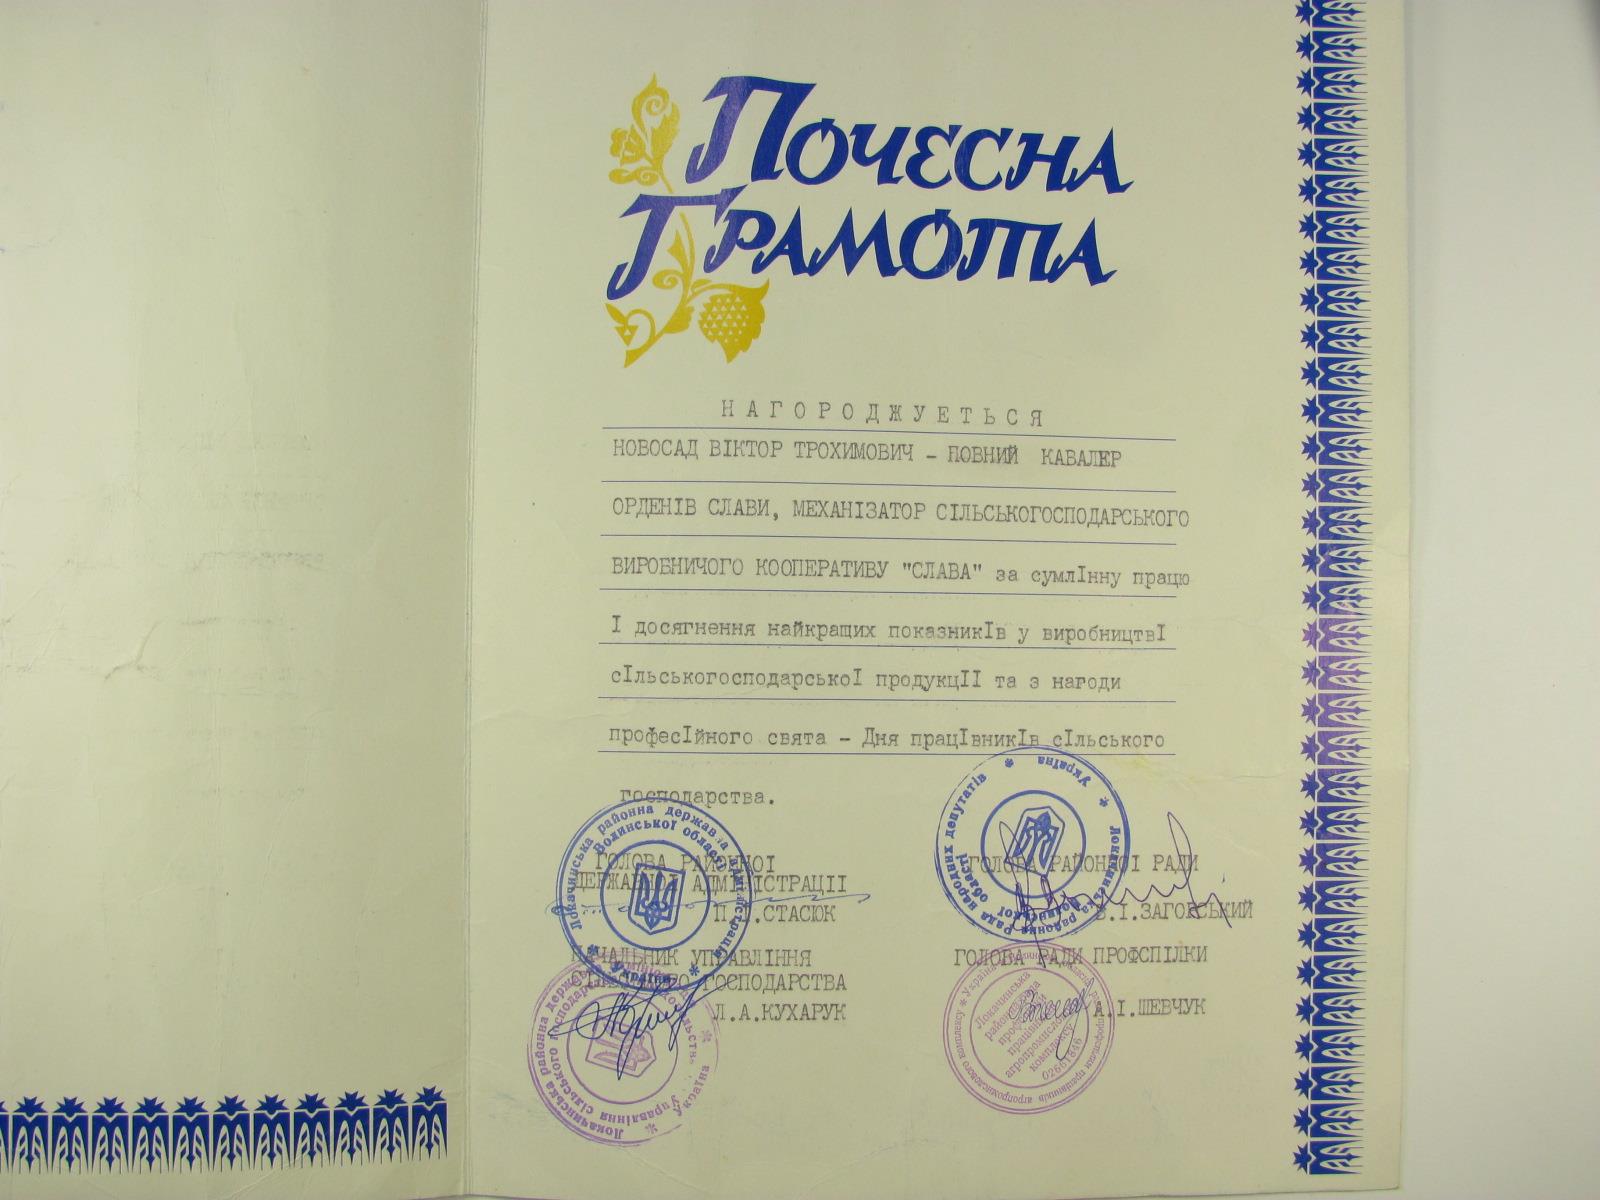 Почесна
Грамота
НАГОРОДЖУЕТЬСЯ
НОВОСАД ВІКТОР ТРОХИМОВИЧ – ПОВНИЙ КАВАЛЕР
ОРДЕНІВ СЛАВИ, МЕХАНІЗАТОР СІЛЬСЬКОГОСПОДАРСЬКОГО
ВИРОБНИЧОГО КООПЕРАТИВУ "СЛАВА" за сумлІнну працю
І досягнення найкращих показникІв у виробництвІ
сІльськогосподарськоІ продукцІІ та з нагоди
професІйного свята – Дня працІвникІв сІльського
господарства.
ГОЛОВА РАЙОННОІ
ДЕРЖАВНОІ АДМІНІСТРАЦІІ
СТАСЮК
ГОЛОВА РАЙОННОІ РАДИ
В.І.ЗАГОРСЬКИЙ
НАЧАЛЬНИК УПРАВЛІННЯ
СІЛЬСЬКОГО ГОСПОДАРСТВА
Л.А.КУХАРУК
ГОЛОВА РАДИ ПРОФСПІЛКИ
А.І.ШЕВЧУК
Локачинська районна державна адміністрація
Волинської області
Україна
Україна
Локачинська районна Рада народних депутатів
Волинської області
Локачинська районна
Управління сільського господарства
Україна
Локачинська
агропромислового
комплексу
02661846